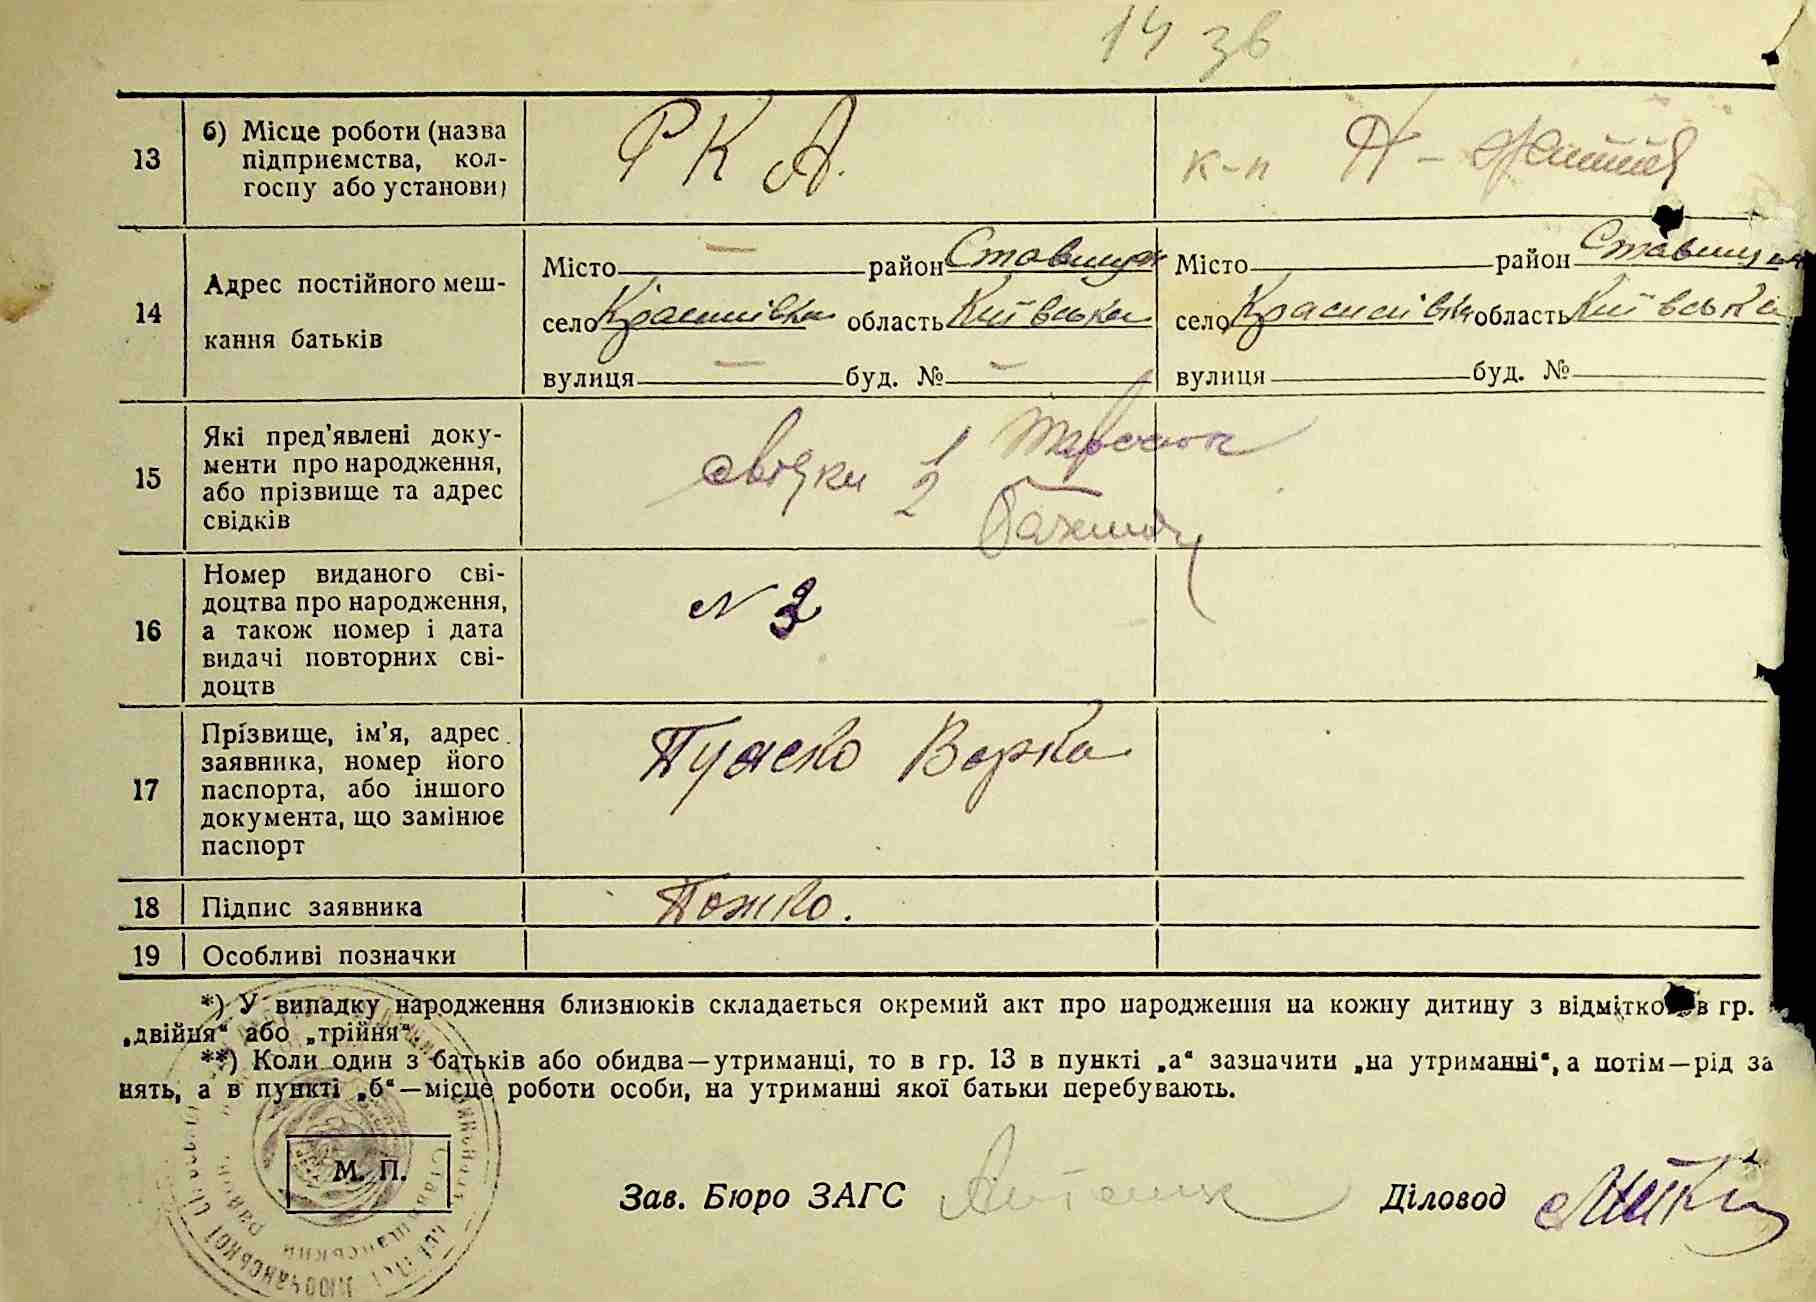 14 зв
13
б) Місце роботи (назва
підприємства, кол-
госпу або установи)
Р К А.
к-п Н-Життя
14
Адрес постійного меш-
кання батьків
Місто — район Ставищан
село Красилівка область Київська
вулиця — буд. № —
Місто район Ставищан
село Красилівка область Київська
вулиця буд. №
15
Які пред'явлені доку-
менти про народження,
або прізвище та адрес
свідків
свідки 1
2
16
Номер виданого сві-
доцтва про народження,
а також номер і дата
видачі повторних сві-
доцтв
N 3
17
Прізвище, ім'я, адрес
заявника, номер його
паспорта, або іншого
документа, що замінює
паспорт
Варка
18
Підпис заявника
19
Особливі позначки
*) У випадку народження близнюків складається окремий акт про народження на кожну дитину з відмітко в гр.
„двійня“ або „трійня“.
**) Коли один з батьків або обидва—утриманці, то в гр. 13 в пункті „а“ зазначити „на утриманні“, а потім—рід за
нять, а в пункті „б“—місце роботи особи, на утриманні якої батьки перебувають.
М. П.
Зав. Бюро ЗАГС
Діловод